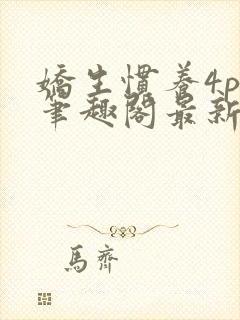 嬌生慣養4p
筆趣閣最新
馬齊